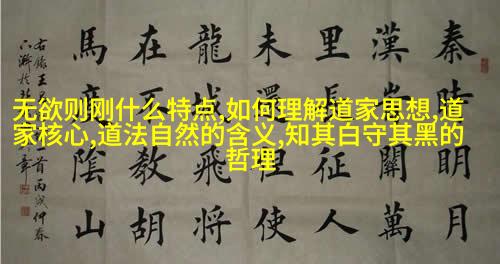 秦時明月
漢關萬
里長征人
未還但使
龍城飛將
在不教胡
馬度陰山
右錄王
首丙戌仲春
无欲则刚什么特点,如何理解道家思想,道
家核心,道法自然的含义,知其白守其黑的
哲理